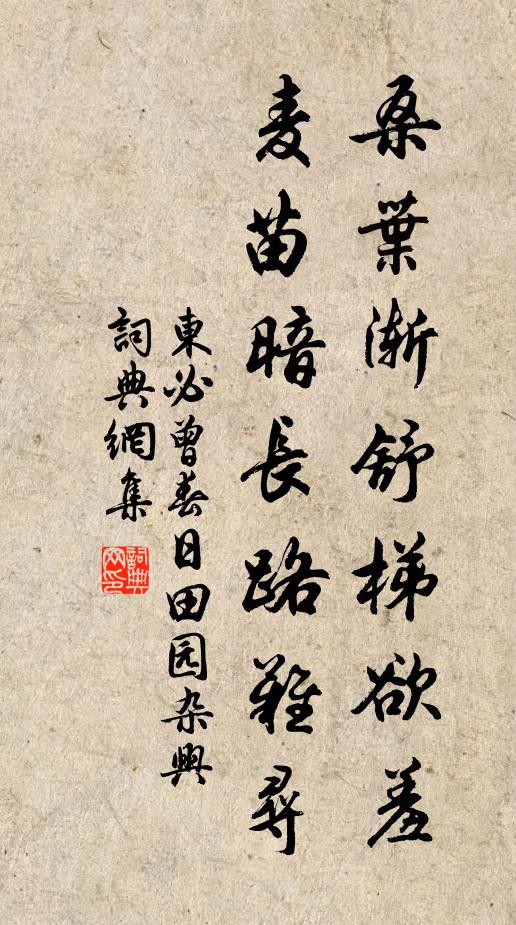 桑葉漸舒梯欲羞
麦苗暗長路難尋
東必曾春日田园杂興
詞典網集
詞典网印